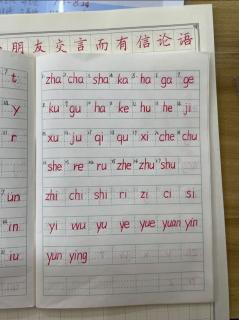 朋友交言而有信论语
t
y
r
ün
in
iu
zha cha sha ka ha ga ge
ku gu ha ke hu he ji
xu ju qi qu xi che chu
she re ru zhe zhu shu
zhi chi shi ri zi ci si
yi wu yu ye yue yuan yin
yun ying